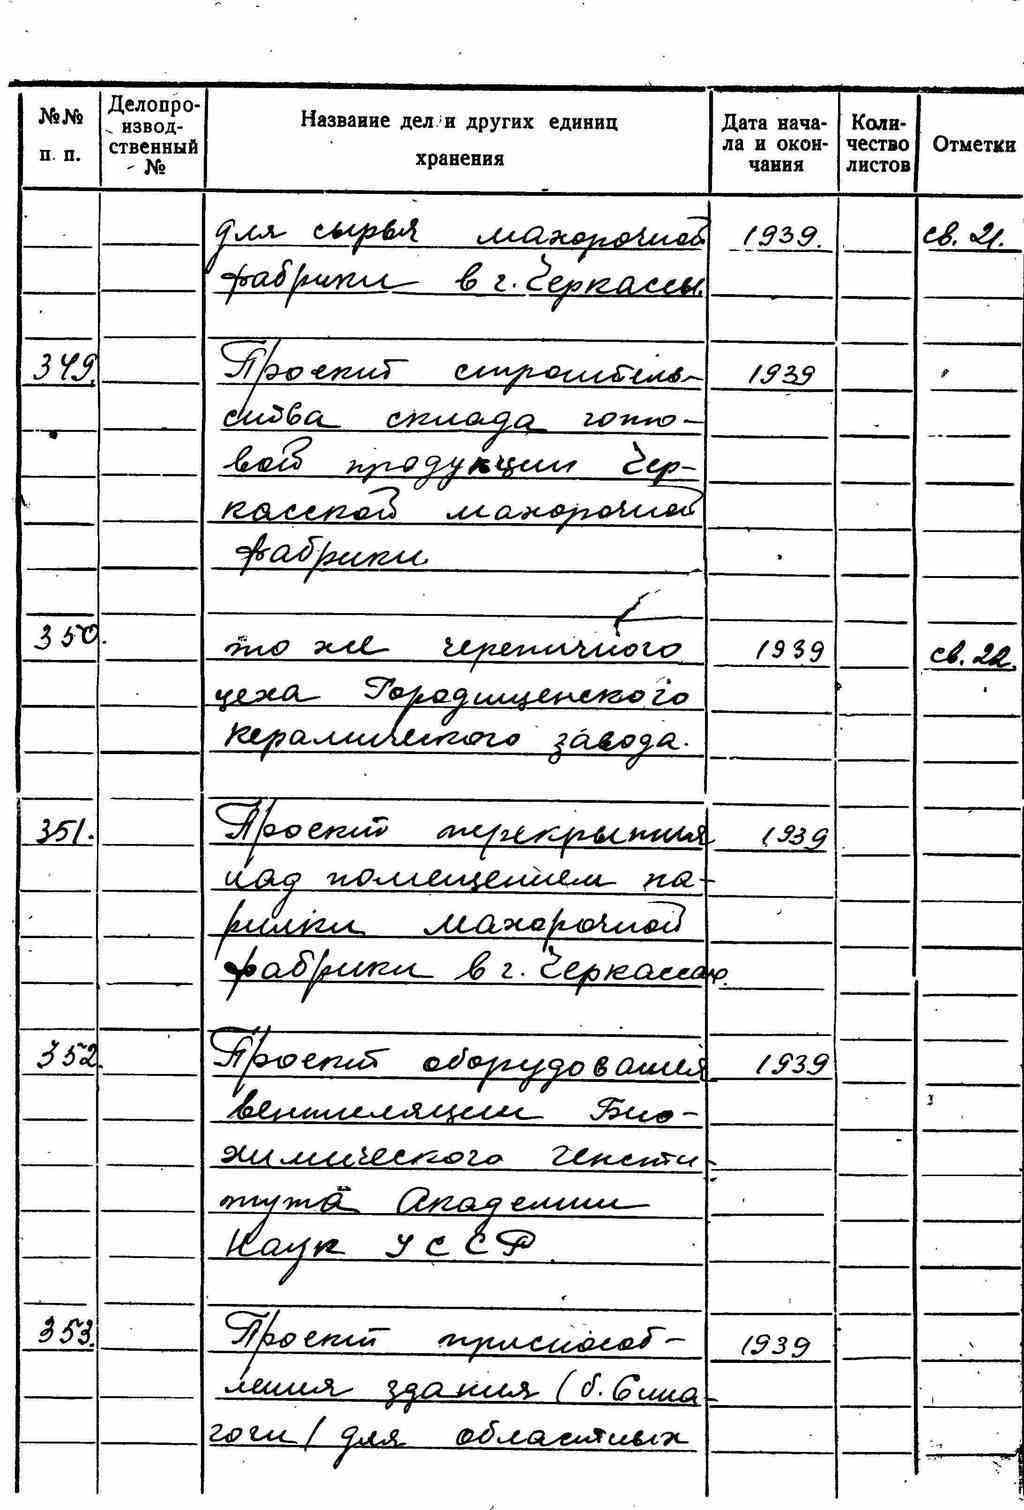 №№ п. п.
Делопро-
извод-
ственный
№
Название дел и других единиц
хранения
Дата нача-
ла и окон-
чания
Коли-
чество
листов
Отметки
для сырья махорочной 1939. св. 21.
фабрики в г. Черкассы.
349. Проект строитель- 1939 "
ства склада гото-
вой продукции Чер-
касской махорочной
фабрики
350. то же черепичного 1939 св. 22.
цеха Городищенского
керамического завода.
351. Проект перекрытия 1939
над помещением па-
рилки махорочной
фабрики в г. Черкассах.
352. Проект оборудования 1939
вентиляции Био-
химического Инсти-
тута Академии
Наук УССР
353. Проект приспособ- 1939
ления здания (б. Сина-
гоги) для областных